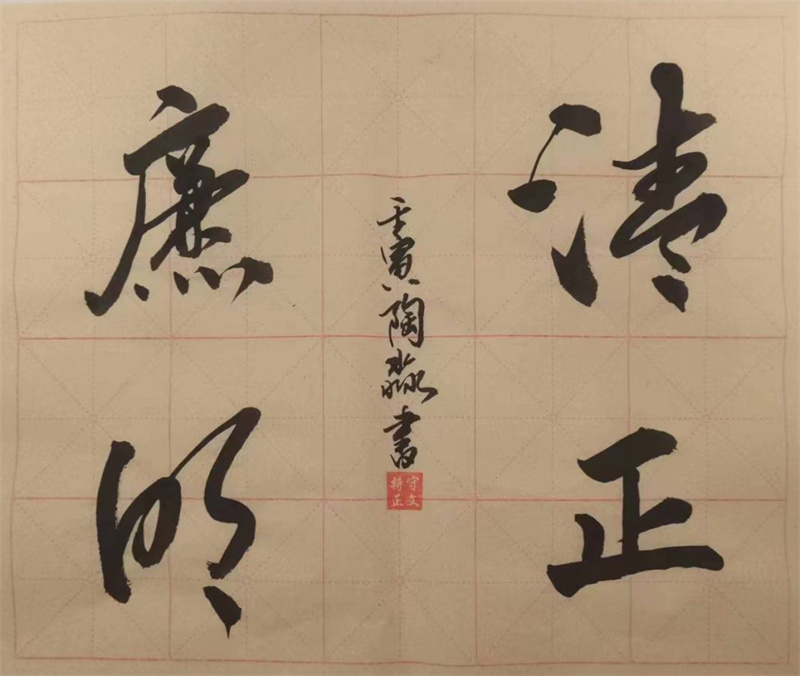 清正
廉明
壬寅陶淼書
守文
持正